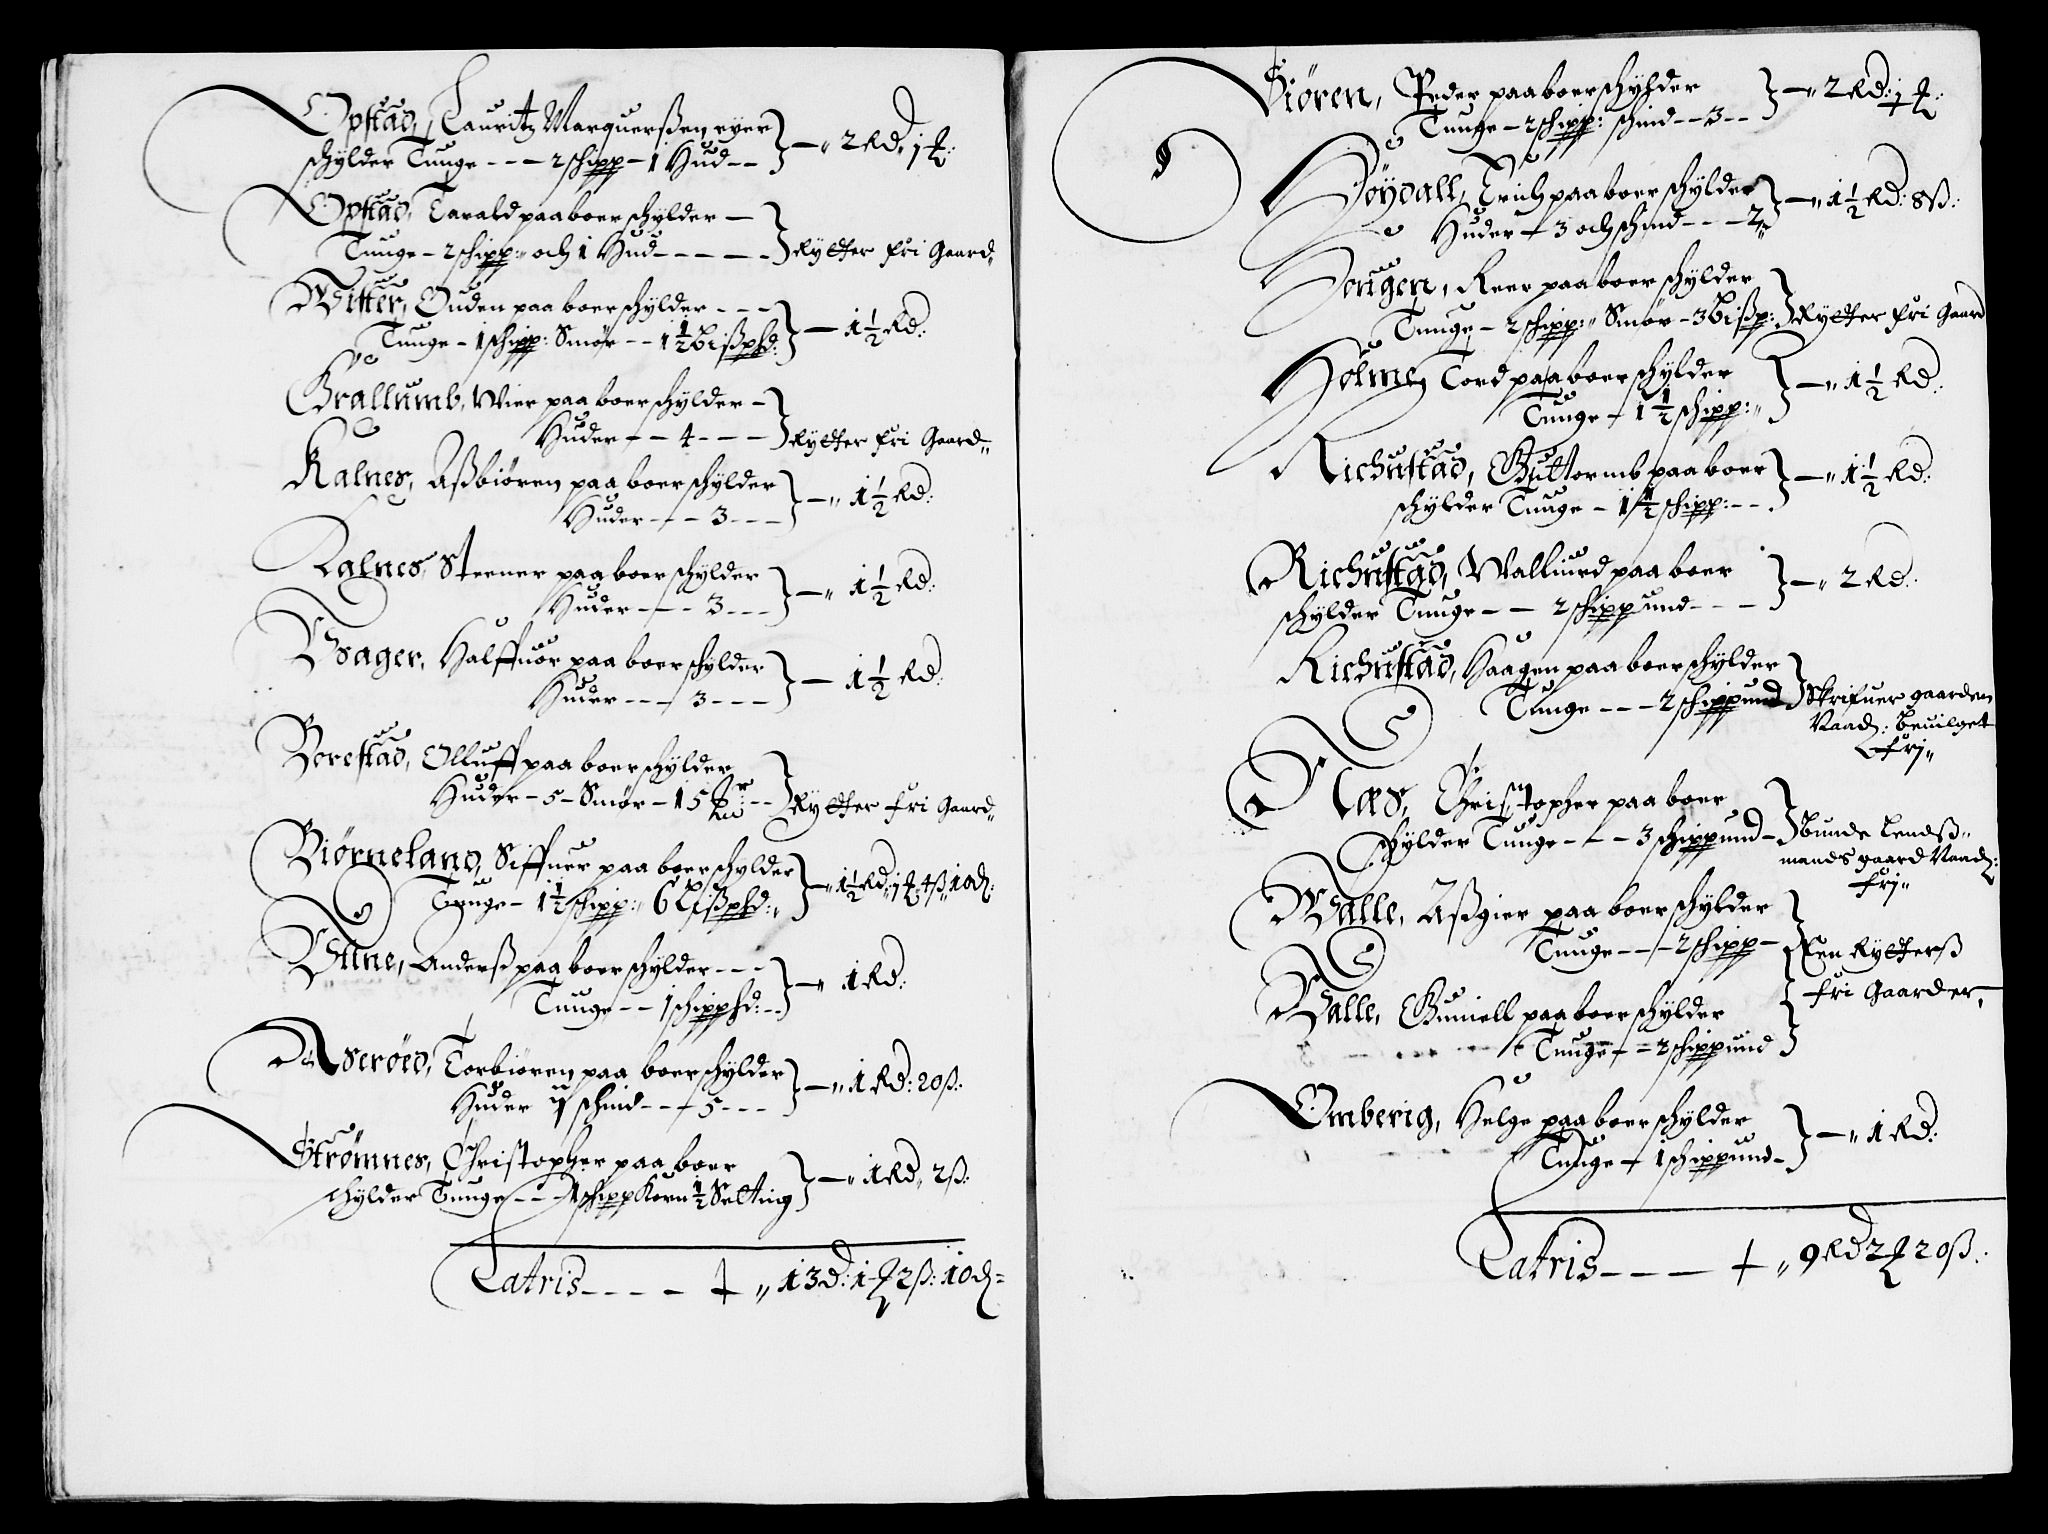 Opstad, Lauritz Marquerßen eyer
schylder Tunge - - - 2 schipp - 1 Hud - - } - „ 2 Rd. 1 ƒ:
Opstad, Tarald paaboer schylder -
Tunge - 2 schipp: „ och 1 Hud - - - - - } Rytter fri Gaard„
Witter, Ouden paa boer schylder - - -
Tunge - 1 schipp: Smør - - 1 1/2 bißpd: } - 1 1/2 Rd:
Grallumb, Wier paa boer schylder -
Huder - - 4 - - - } Rytter fri Gaard„
Kalnes, Aßbiøren paa boer schylder
Huder - - - 3 - - - } - „ 1 1/2 Rd:
Kalnes, Steener paa boer schylder
Huder - - - 3 - - - } - „ 1 1/2 Rd:
Hager, Halffuor paa boer schylder
Huder - - - 3 - - - } - 1 1/2 Rd:
Borestad, Olluff paa boer schylder
Huder - 5 - Smør - 15 - - } Rytter fri Gaard„
Biørneland, Siffuer paa boer schylder
Tunge - 1 1/2 schipp: „ 6 Lißpd: „ } - „ 1 1/2 Rd: 1 ƒ 4 ß„ 10 d:
Tune, Anderß paa boer schylder - - -
Tunge - - 1 schippd: - - } - „ 1 Rd:
Aserøed, Torbiøren paa boer schylder
Huder 1 schind - - - 5 - - - } - „ 1 Rd: 20 ß:
Strømnes, Christopher paa boer
schylder Tunge - - - 1 schipp Korn 1/2 Setting } - „ 1 Rd„ 2 ß:
Latris - - - - „ 13 d: 1 ƒ 2 ß: 10 d=
Siøren, Peder paa boer schylder
Tunge - 2 schipp: schind - - 3 - - } - „ 2 Rd: 1 ƒ:
Høydall, Erich paa boer schylder
Huder - 3 och schind - - - 2„ } - „ 1 1/2 Rd: 8 ß:
Reer paa boer schylder
Tunge - 2 schipp: „ Smør - 3 bißp: } Rytter fri Gaard
Holmen Tord paa boer schylder
Tunge - 1 1/2 schipp: „ } - „ 1 1/2 Rd:
Richustad, Guttormb paa boer
schylder Tunge - 1 1/2 schipp: - - } - „ 1 1/2 Rd:
Richustad, Halluord paa boer
schylder Tunge - - 2 schippund - - - } - „ 2 Rd:
Richustad, Haagen paa boer schylder
Tunge - - - 2 schippund } Skrifuer gaarden
Naad: beuilget
frj„
Næs, Christopher paa boer
schylder Tunge - - - 3 schippund - } Bunde Lendß„
mands gaard Naad:
frj„
Walle, Aßgier paa boer schylder
Tunge - - - 2 schipp -
Een Rytterß
fri Gaarder,
Walle, Guniell paa boer schylder
Tunge - - 2 schippund
Omberig, Helge paa boer schylder
Tunge - 1 schippund - } - „ 1 Rd:
Latris - - - - „ 9 Rd 2 ƒ 20 ß: